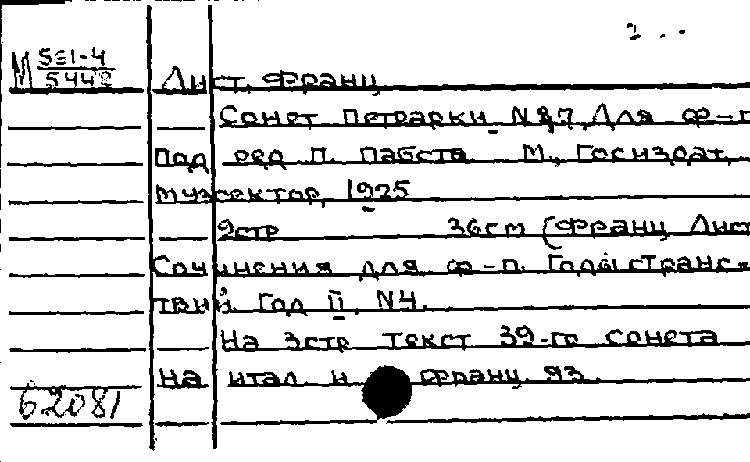 2 . .
М 551-4
5448
Лист, Франц
Сонет Петрарки N 87. Для ф-п
под ред П. Пабста М., Госиздат,
музсектор, 1925
9стр 36см (Франц Лист
Сочинения для ф-п. Годы странс-
твий. Год II. N4.
На 3стр текст 39-го сонета
на итал. и франц. яз.
62081